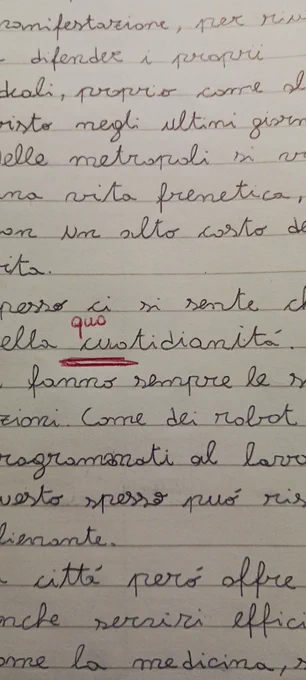 manifestazione, per riv
difender i propri
deali, proprio come al
isto negli ultimi giorn
elle metropoli si v
na vita frenetica,
on un alto costo de
ita.
pesso ci si sente ch
quo
ella cuotidianitá.
fanno sempre le s
zioni. Come dei robot
rogrammati al lavo
uesto spesso puó ris
lienante.
cittá peró offre
nche servizi effici
ome la medicina, s